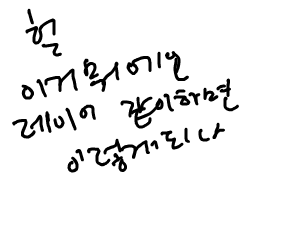 헐
이거 뭐에요
레이어 같이하면
이렇게되나